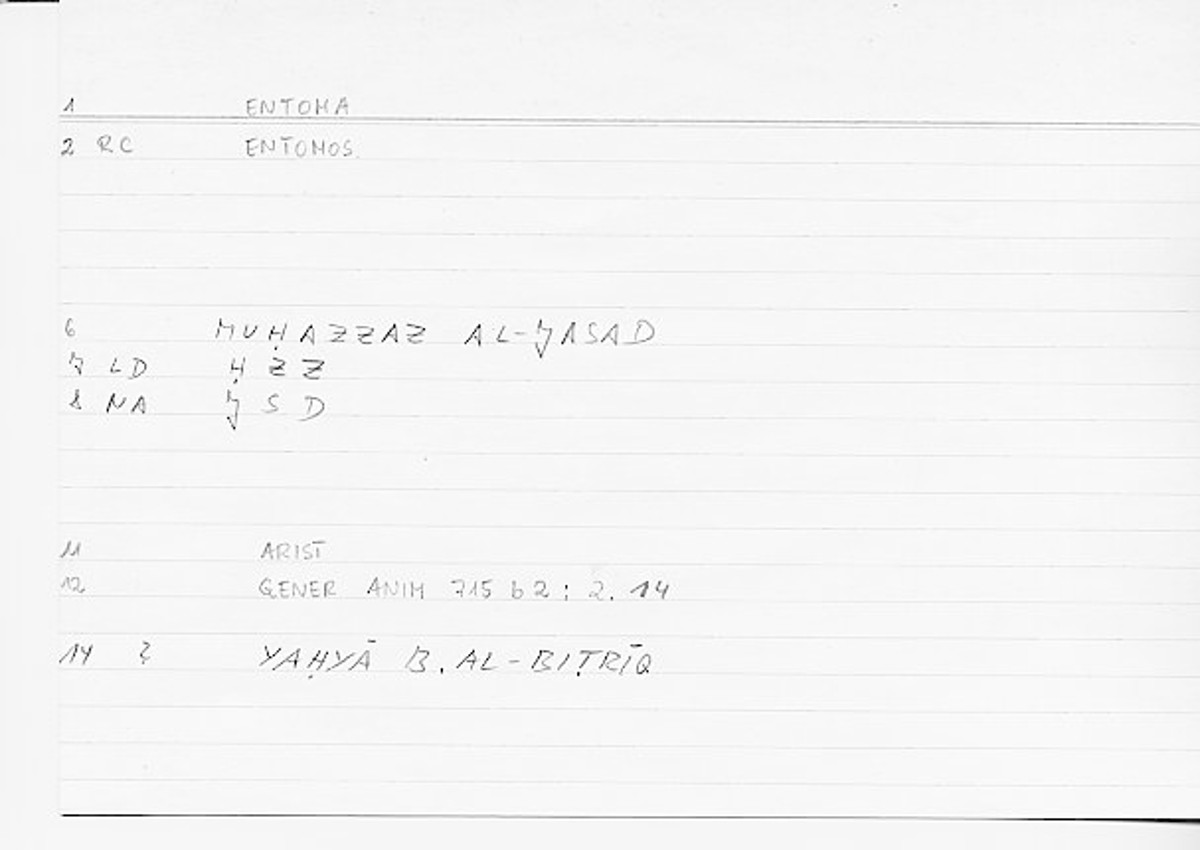 1 ENTOMA
2 RC ENTOMOS
6 MUḤAZZAZ AL-JASAD
7 LD Ḥ Z Z
8 NA J S D
11 ARIST
12 GENER ANIM 715 b 2 ; 2. 14
14 ? YAḤYĀ B. AL-BIṬRĪQ